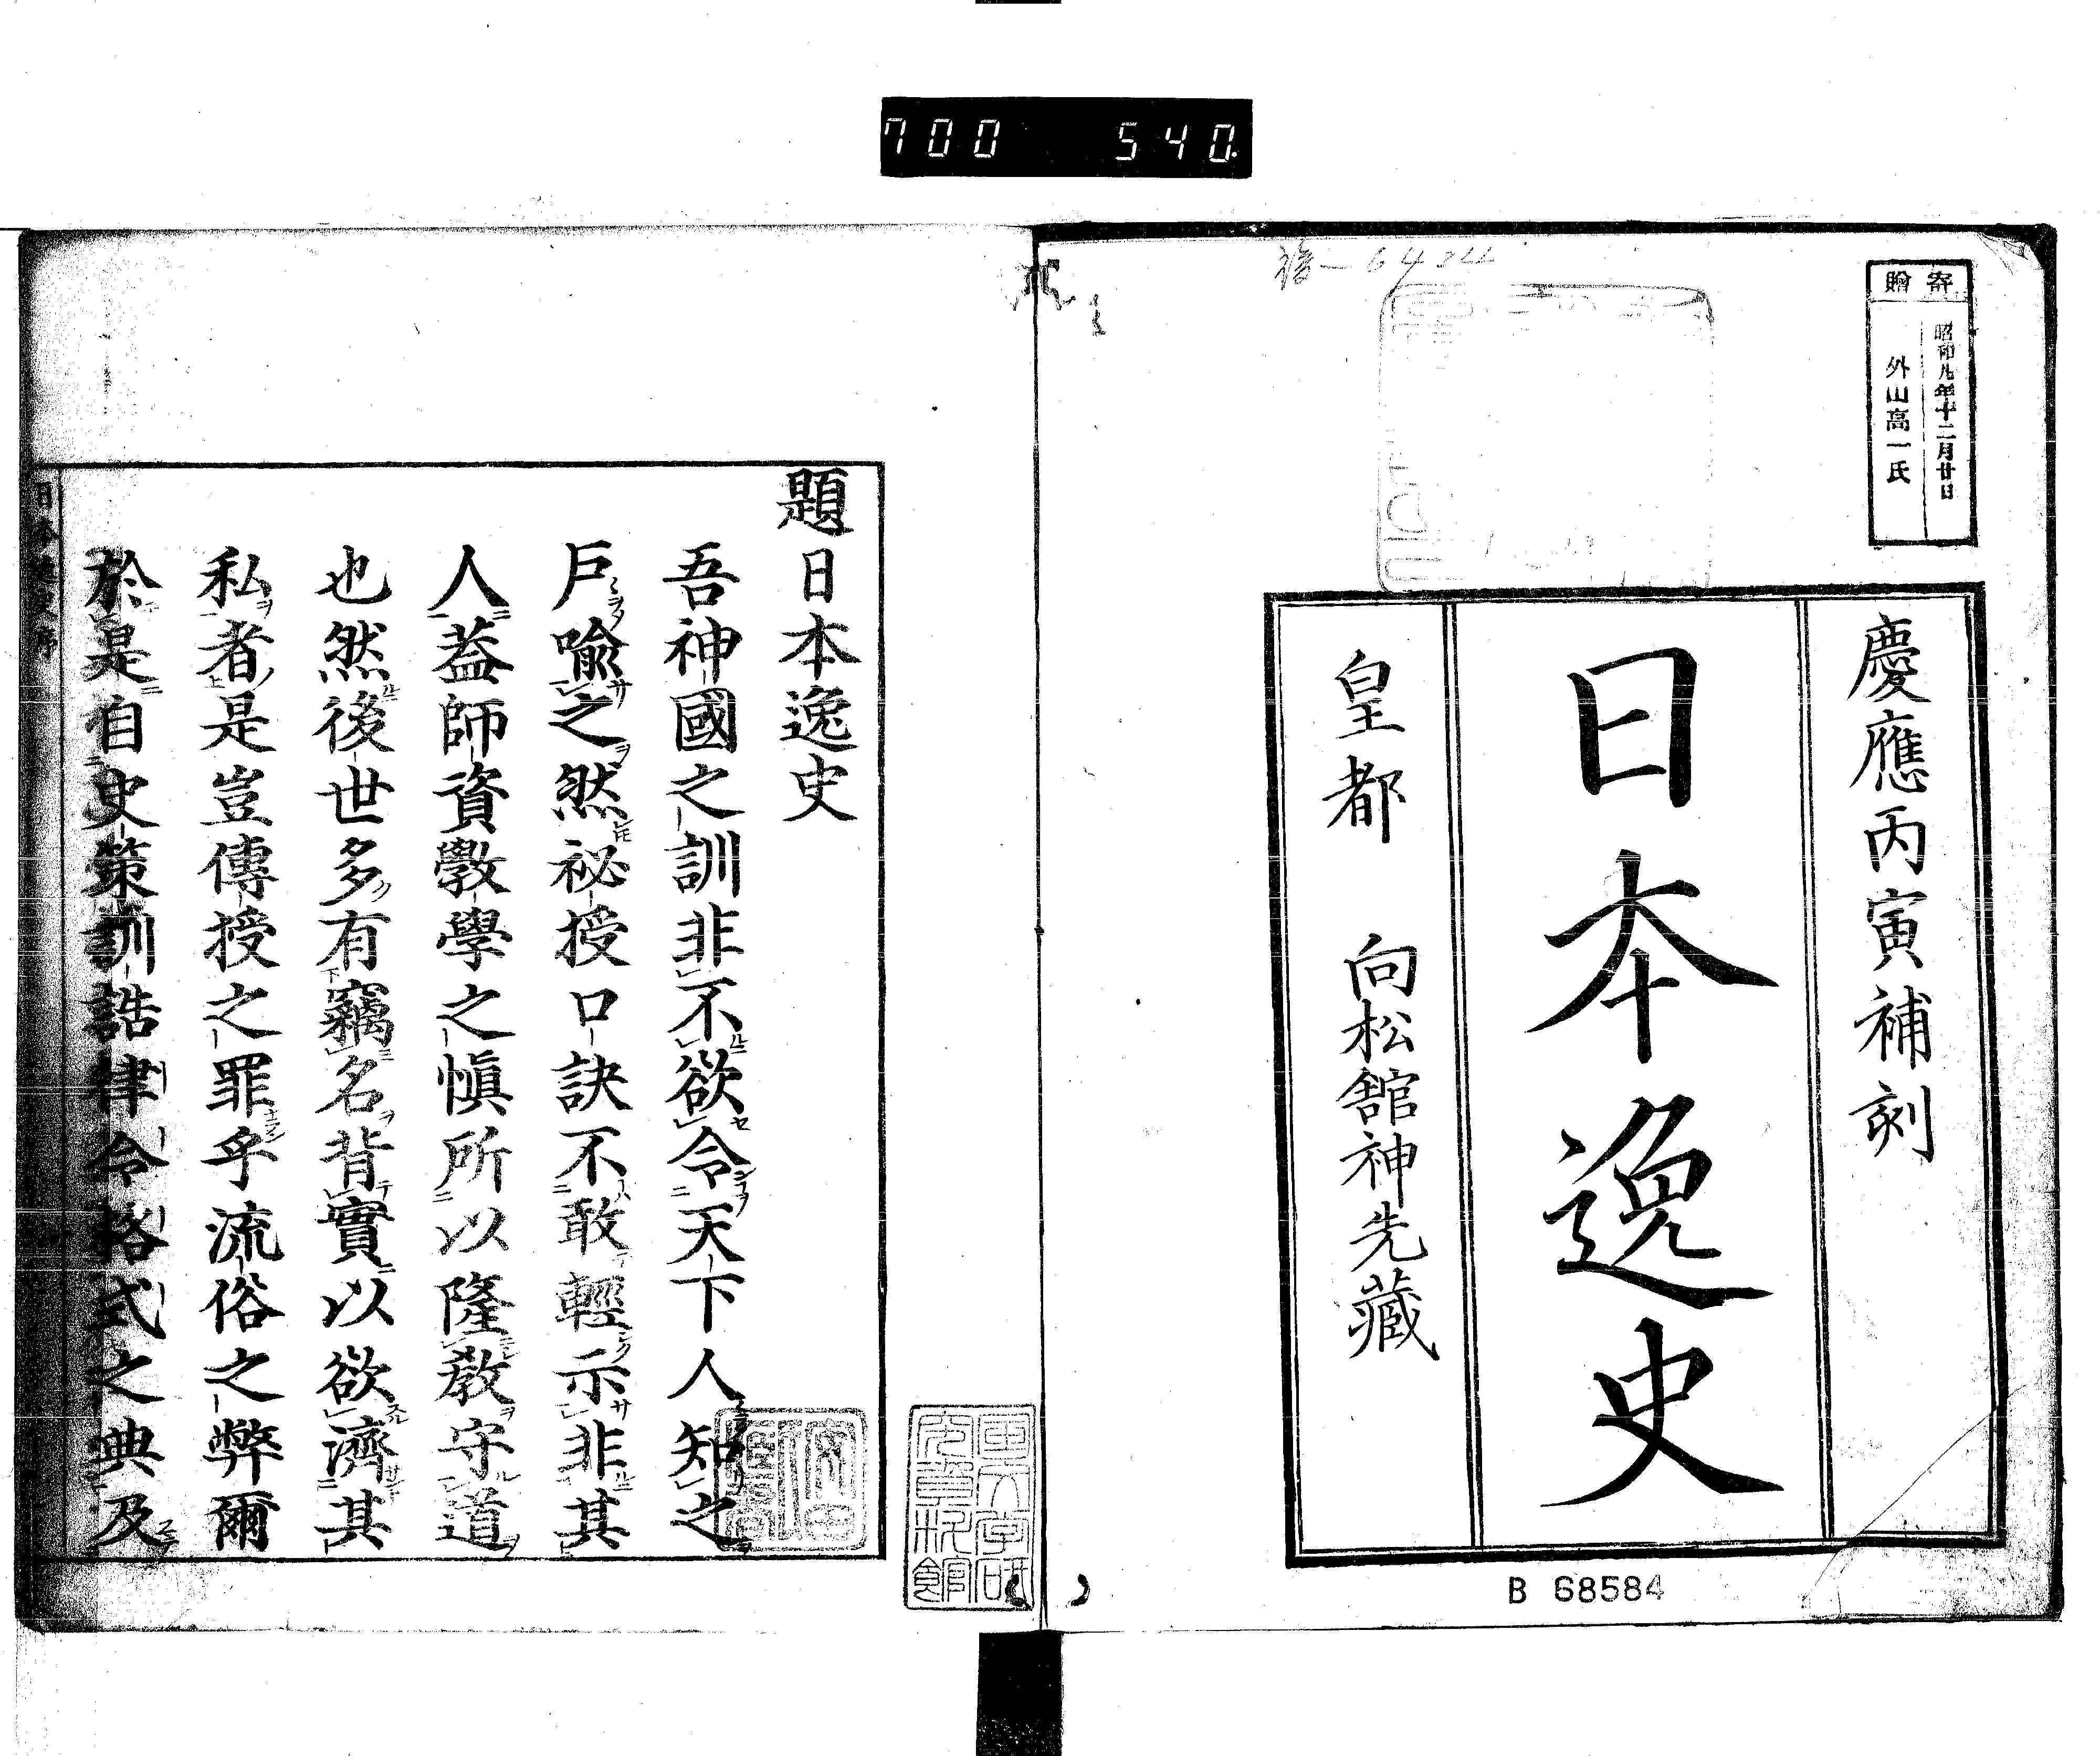 700 540.
寄贈
昭和九年十二月廿日
外山高一氏
慶應丙寅補刻
日本逸史
皇都 向松舘神先藏
B 68584
題日本逸史
吾神國之訓非不欲令天下人知之
戶喩之然祕授口訣不敢輕示非其
人蓋師資敎學之愼所以隆敎守道
也然後世多有竊名背實以欲濟其
私者是豈傳授之罪乎流俗之弊爾
於是自史策訓誥律令格式之典及
日本逸史序